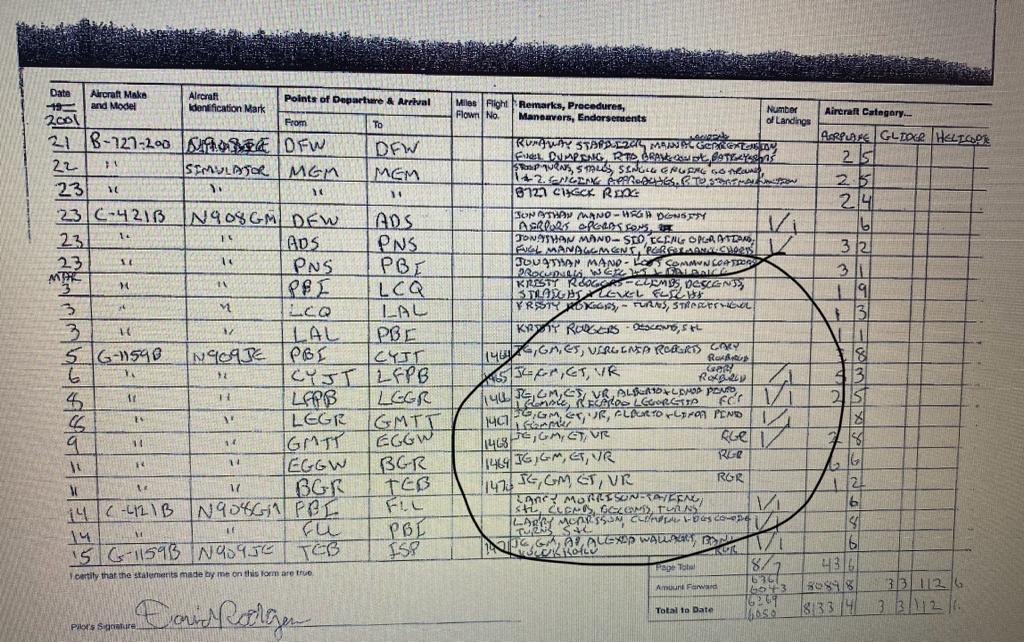 Date 19 2001 Aircraft Make and Model Aircraft Identification Mark Points of Departure & Arrival From To Miles Flown Flight No. Remarks, Procedures, Maneuvers, Endorsements Number of Landings Aircraft Category...
AIRPLANE GLIDER HELICOPTE
21 B-727-200 DFW DFW RUNAWAY STABILIZER, MANUAL GEAR EXTENSION, FUEL DUMPING, RTO, 2 5
22 " SIMULATOR MEM MEM STEEP TURNS, STALLS, SINGLE ENGINE GO AROUND, 1 & 2 ENGINE APPROACHES, 2 5
23 " " " " B727 CHECK RIDE 2 4
23 C-421B N908GM DFW ADS JONATHAN MANO - HIGH DENSITY AIRPORT OPERATIONS, 1/1 6
23 " " ADS PNS JONATHAN MANO - SID, ICING OPERATIONS, FUEL MANAGEMENT, PERFORMANCE CHARTS 3 2
23 " " PNS PBI JONATHAN MANO - LOST COMMUNICATIONS PROCEDURES, WEIGHT & BALANCE 3 1
MAR 3 " " PBI LCQ KRISTY RODGERS - CLIMBS, DESCENTS, STRAIGHT & LEVEL FLIGHT 1 9
3 " " LCQ LAL KRISTY RODGERS, - TURNS, STRAIGHT & LEVEL 1 3
3 " " LAL PBI KRISTY RODGERS - DESCENTS, S+L 1 1
5 G-1159B N909JE PBI CYJT 1464 JE, GM, ET, VIRGINIA ROBERTS GARY ROXBURGH 8
6 " " CYJT LFPB 1465 JE, GM, ET, VR GARY ROXBURGH 1 5 3
8 " " LFPB LEGR 1466 JE, GM, ET, VR, ALBERTO + LINDA PINTO, 1 FEMALE, RICARDO LEGORRETTA 1/1 2 5
8 " " LEGR GMTT 1467 JE, GM, ET, VR, ALBERTO + LINDA PINTO 1 FEMALE 1/1 8
9 " " GMTT EGGW 1468 JE, GM, ET, VR RGR 1/ 2 8
11 " " EGGW BGR 1469 JE, GM, ET, VR RGR 6 6
11 " " BGR TEB 1470 JE, GM, ET, VR RGR 1 2
14 C-421B N908GM PBI FLL LARRY MORRISON - TAXIING, S+L, CLIMBS, DESCENTS, TURNS 1/1 6
14 " " FLL PBI LARRY MORRISON, TURNS S+L 8
15 G-1159B N909JE TEB ISP JE, GM, AP, ALEXIA WALLAERT, RGR 1/1 6
I certify that the statements made by me on this form are true.
Page Total 8/7 43 6
Amount Forward 6043 8089 8 3 3 112 6
Total to Date 6269 6050 8133 4 3 3 112
Pilot's Signature David Rodgers